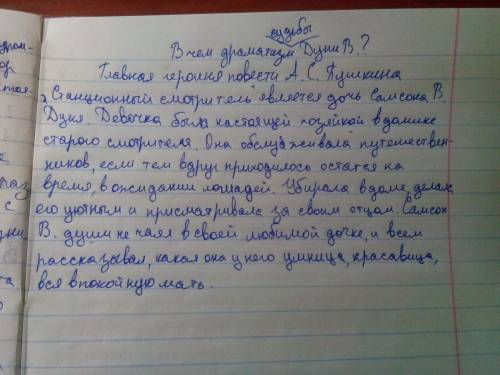 судьбы
В чем драматизм Дуни В.?
Главная героиня повести А. С. Пушкина
"Станционный смотритель" является дочь Самсона В.
Дуня. Девочка была настоящей хозяйкой в домике
старого смотрителя. Она обслуживала путешествен-
ников, если тем вдруг приходилось остатся на
время, в ожидании лошадей. Убирала в доме, делала
его уютным и присматривала за своим отцом. Самсон
В. души не чаял в своей любимой дочке, и всем
рассказывал, какая она у него умница, красавица,
вся в покойную мать.